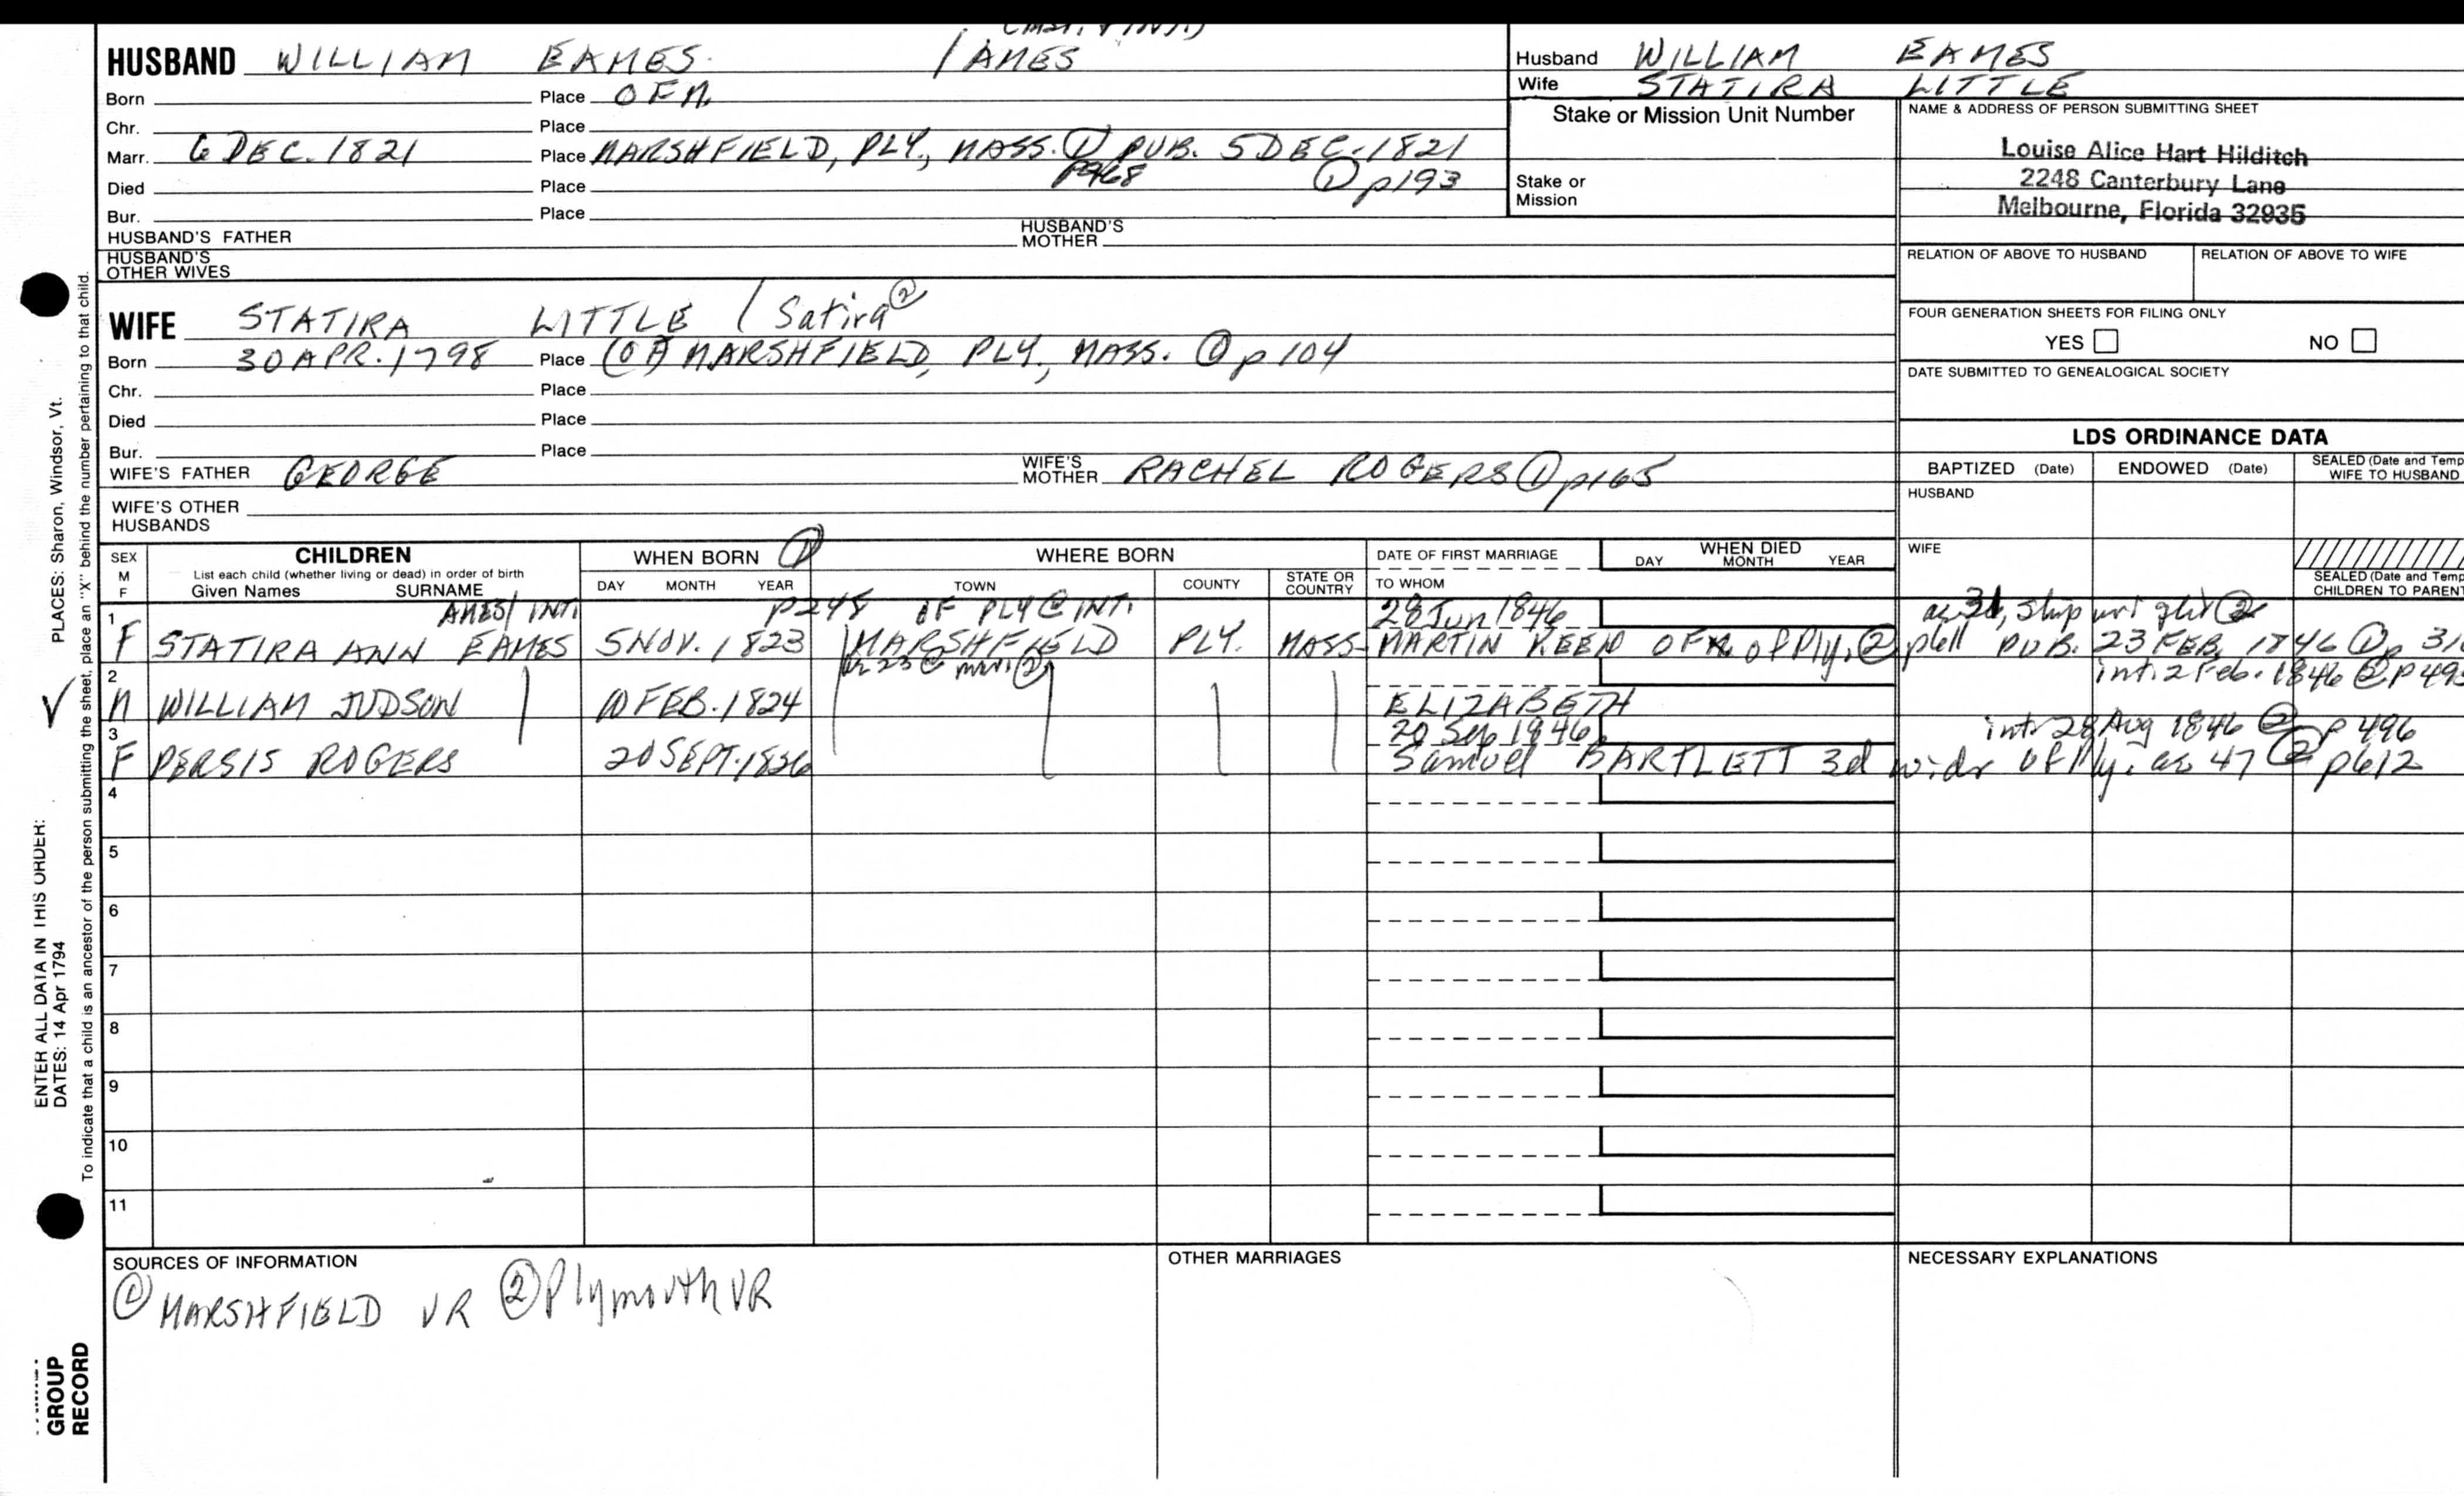 HUSBAND WILLIAM EAMES / AMES
Born Place OF M.
Chr. Place
Marr. 6 DEC. 1821 Place MARSHFIELD, PLY., MASS. ① PUB. 5 DEC. 1821
p468 ① p193
Died Place
Bur. Place
HUSBAND'S FATHER HUSBAND'S MOTHER
HUSBAND'S OTHER WIVES
Husband WILLIAM EAMES
Wife STATIRA LITTLE
Stake or Mission Unit Number
Stake or Mission
NAME & ADDRESS OF PERSON SUBMITTING SHEET
Louise Alice Hart Hilditch
2248 Canterbury Lane
Melbourne, Florida 32935
RELATION OF ABOVE TO HUSBAND RELATION OF ABOVE TO WIFE
FOUR GENERATION SHEETS FOR FILING ONLY
YES NO
DATE SUBMITTED TO GENEALOGICAL SOCIETY
WIFE STATIRA LITTLE / Satira ②
Born 30 APR. 1798 Place (OF) MARSHFIELD, PLY., MASS. ① p 104
Chr. Place
Died Place
Bur. Place
WIFE'S FATHER GEORGE WIFE'S MOTHER RACHEL ROGERS ① p165
WIFE'S OTHER HUSBANDS
LDS ORDINANCE DATA
BAPTIZED (Date) ENDOWED (Date) SEALED (Date and Temp
WIFE TO HUSBAND
HUSBAND
WIFE
SEALED (Date and Temp
CHILDREN TO PARENT
SEX M F
CHILDREN
List each child (whether living or dead) in order of birth
Given Names SURNAME
WHEN BORN ①
DAY MONTH YEAR
WHERE BORN
TOWN COUNTY STATE OR COUNTRY
DATE OF FIRST MARRIAGE
TO WHOM
WHEN DIED
DAY MONTH YEAR
1 AMES/ INT. p248 OF PLY @ INT. 28 Jun 1846 ae 31, ship wright ②
F STATIRA ANN EAMES 5 NOV. 1823 MARSHFIELD PLY. MASS. MARTIN KEEN OF of Ply. ② p611 PUB. 23 FEB. 1846 ① p 31
ae 23 @ marr ② int. 2 Feb. 1846 ② p 493
2
M WILLIAM JUDSON 10 FEB. 1824 ELIZABETH
3 20 Sep 1946 int. 28 Aug 1846 ② p 496
F PERSIS ROGERS 20 SEPT. 1826 Samuel BARTLETT 3d widr of Ply. ae 47 ② p612
4
5
6
7
8
9
10
11
SOURCES OF INFORMATION
① MARSHFIELD VR ② Plymouth VR
OTHER MARRIAGES
NECESSARY EXPLANATIONS
ENTER ALL DATA IN THIS ORDER:
DATES: 14 Apr 1794
PLACES: Sharon, Windsor, Vt.
To indicate that a child is an ancestor of the person submitting the sheet, place an "X" behind the number pertaining to that child.
GROUP
RECORD